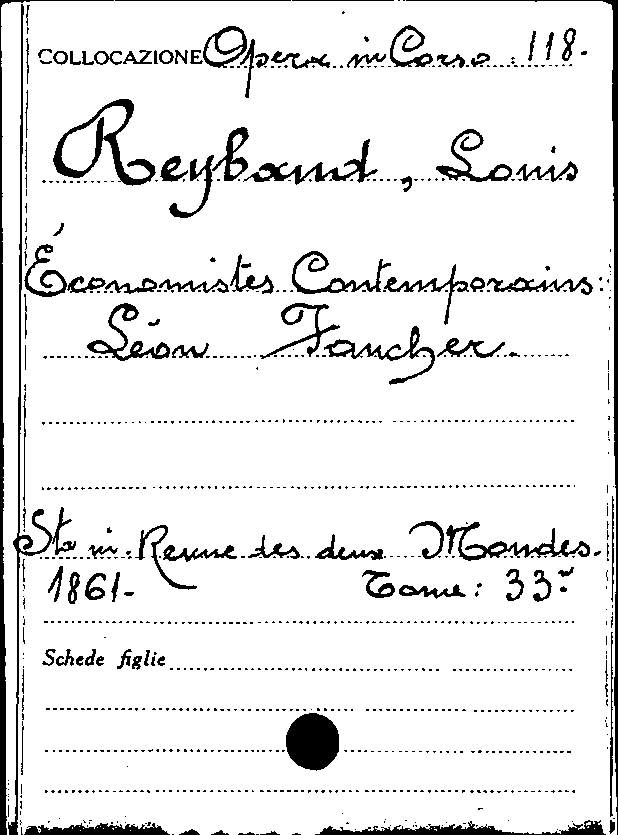 COLLOCAZIONE Opera in Corso . 118.
Reybaud, Louis
Économistes Contemporains:
Léon Faucher.
Sta in. Revue des deux Mondes.
1861- Tome: 33º
Schede figlie